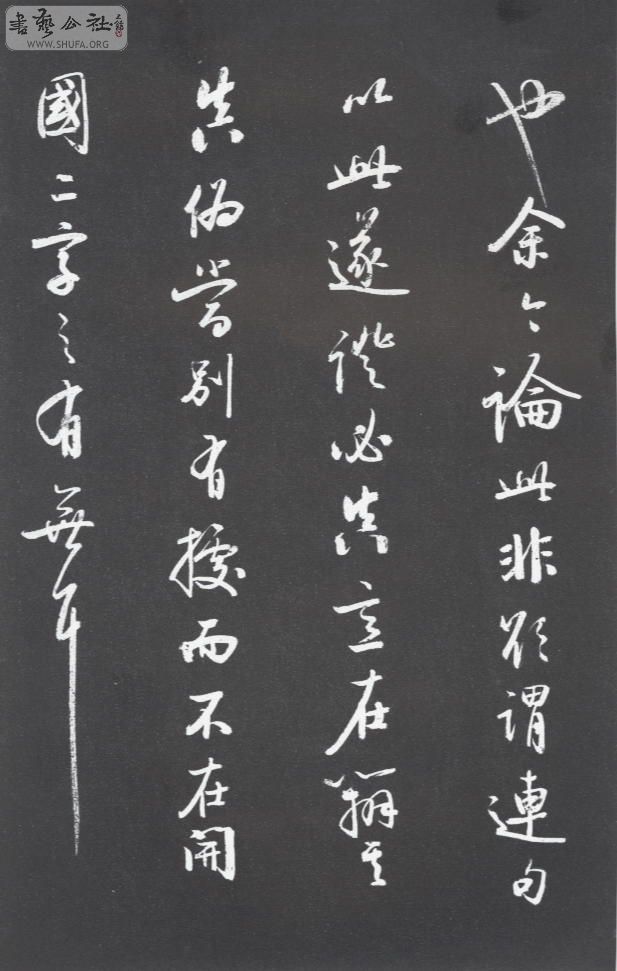 書藝公社
WWW.SHUFA.ORG
也余今論此非欲謂連句
以此遂證必真意在辨其
真偽當別有據而不在開
國二字之有無耳